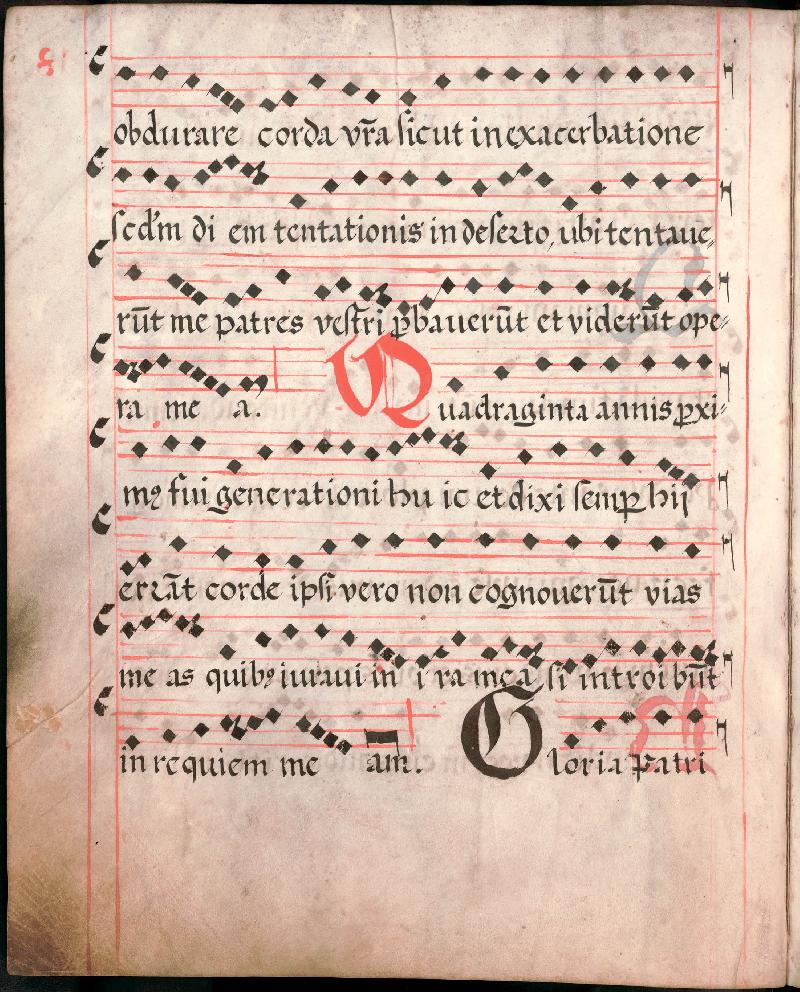 obdurare corda vr̃a sicut in exacerbatione
scd'm di em tentationis in deserto, ubi tentaue,,
rũt me patres vestri ꝓbauerũt et viderũt ope,,
ra me a. Quadraginta annis ꝓxi,,
mꝰ fui generationi hu ic et dixi semꝑ hij
errãt corde ipsi vero non cognouerũt vias
me as quibꝰ iuraui in i ra mea si introibũt
in requiem me am. Gloria patri